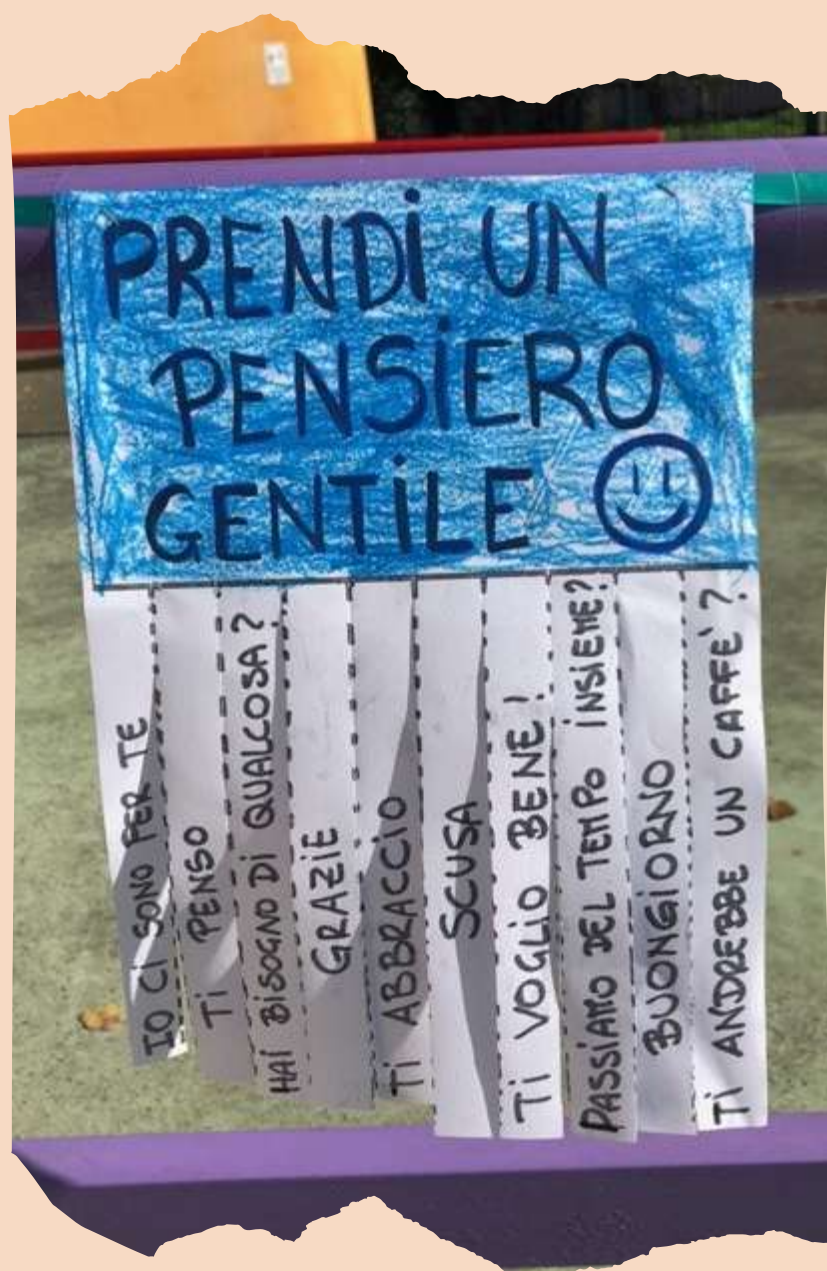 PRENDI UN
PENSIERO
GENTILE
IO CI SONO PER TE
TI PENSO
HAI BISOGNO DI QUALCOSA?
GRAZIE
TI ABBRACCIO
SCUSA
TI VOGLIO BENE!
PASSIAMO DEL TEMPO INSIEME?
BUONGIORNO
TI ANDREBBE UN CAFFE'?